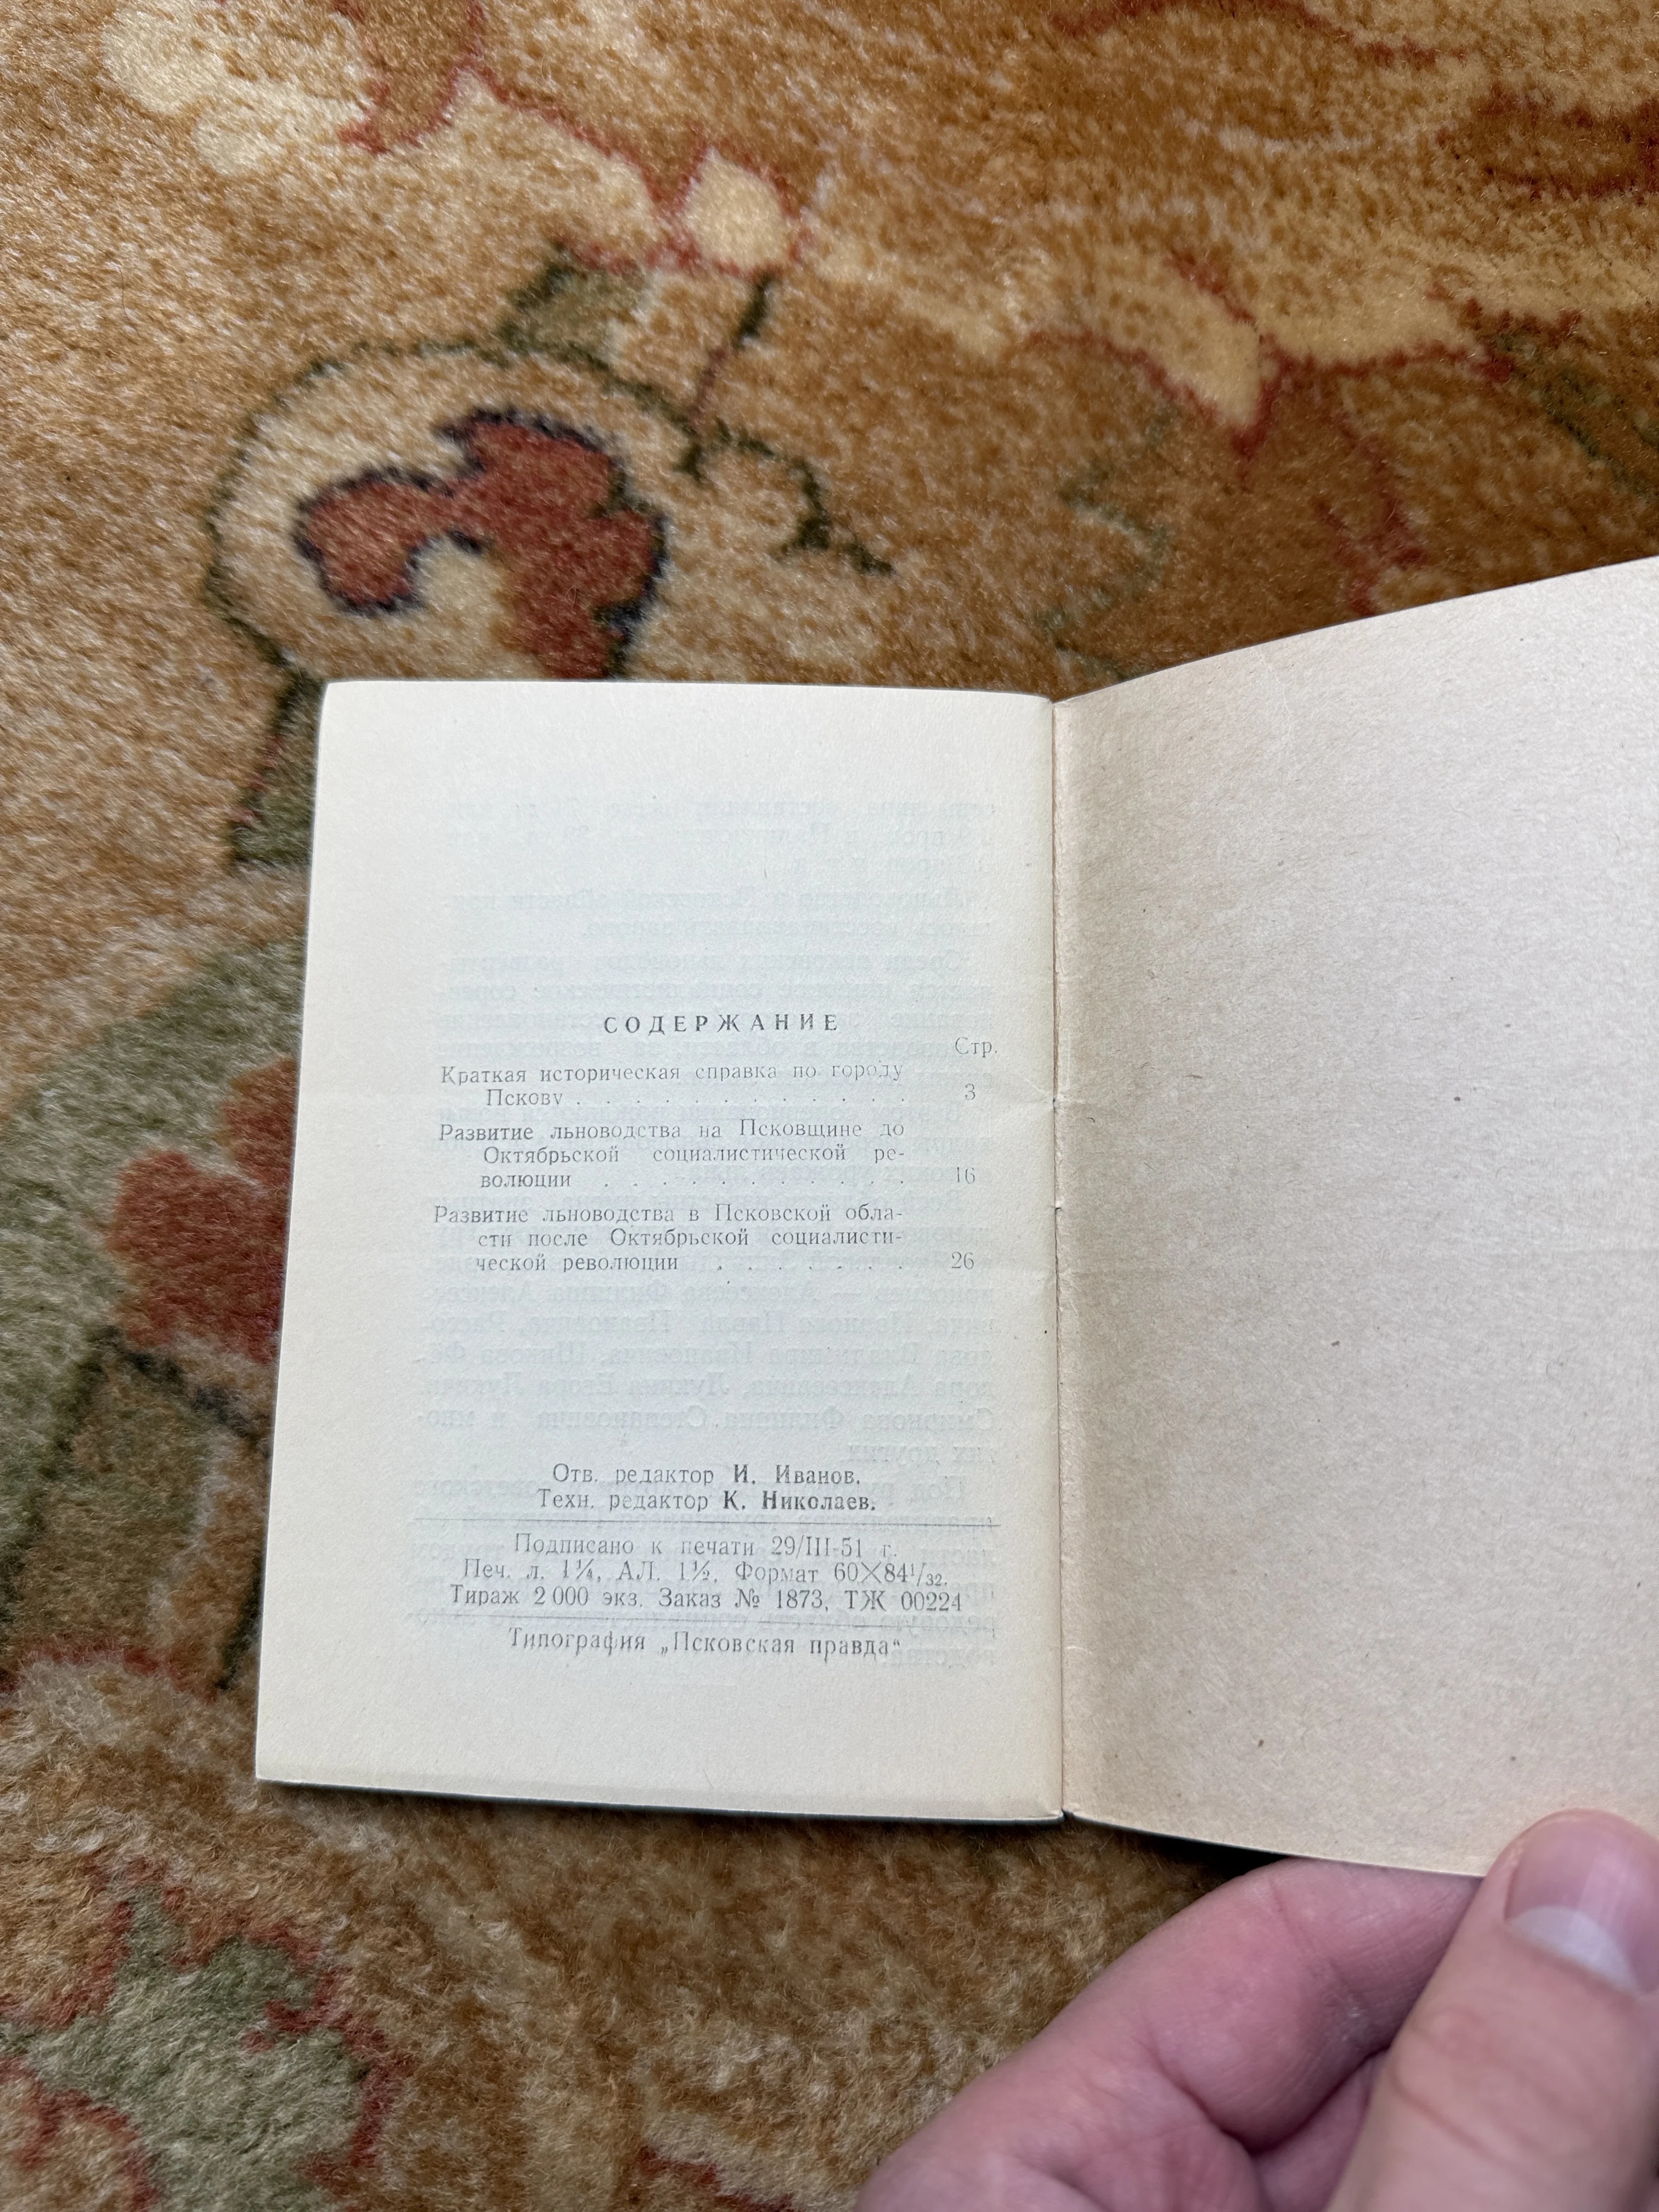 СОДЕРЖАНИЕ
Стр.
Краткая историческая справка по городу
Пскову . . . . . . . . . . . . 3
Развитие льноводства на Псковщине до
Октябрьской социалистической ре-
волюции . . . . . . . . . . . 16
Развитие льноводства в Псковской обла-
сти после Октябрьской социалисти-
ческой революции . . . . . . . 26
Отв. редактор И. Иванов.
Техн. редактор К. Николаев.
Подписано к печати 29/III-51 г.
Печ. л. 1¼, АЛ. 1½. Формат 60×84¹/₃₂.
Тираж 2 000 экз. Заказ № 1873, ТЖ 00224
Типография „Псковская правда“